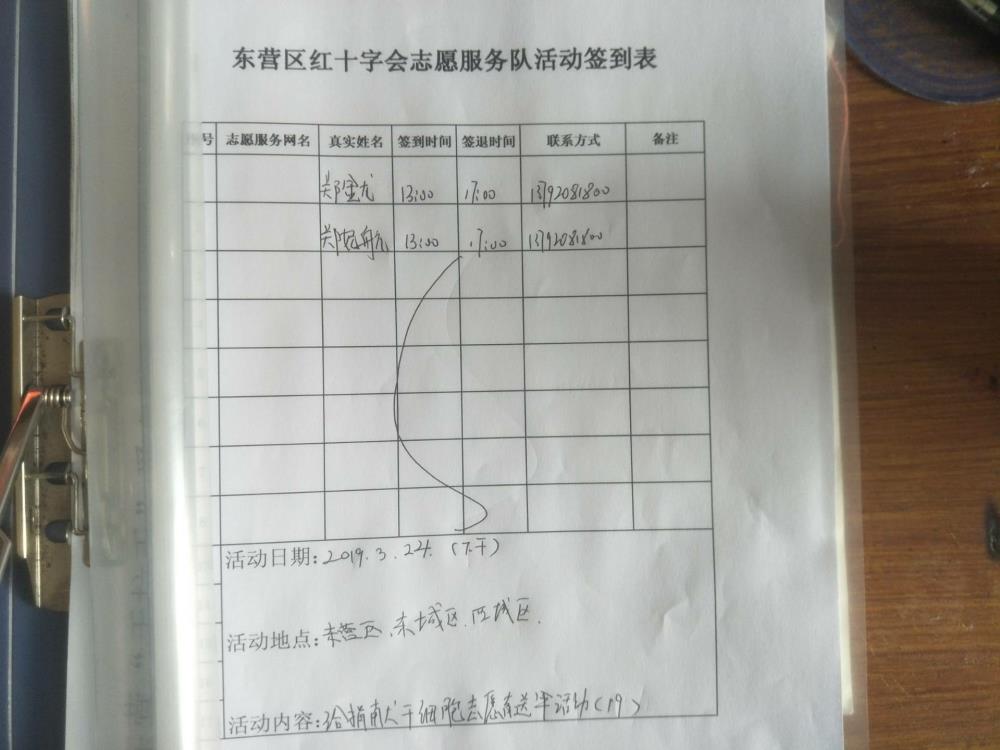 东营区红十字会志愿服务队活动签到表
号 志愿服务网名 真实姓名 签到时间 签退时间 联系方式 备注
郑金龙 13:00 17:00 13792081800
郑 航 13:00 17:00 13792081800
活动日期:2019.3.24.(下午)
活动地点:东营区、东城区、西城区.
活动内容:给捐献干细胞志愿者送 活动(19)